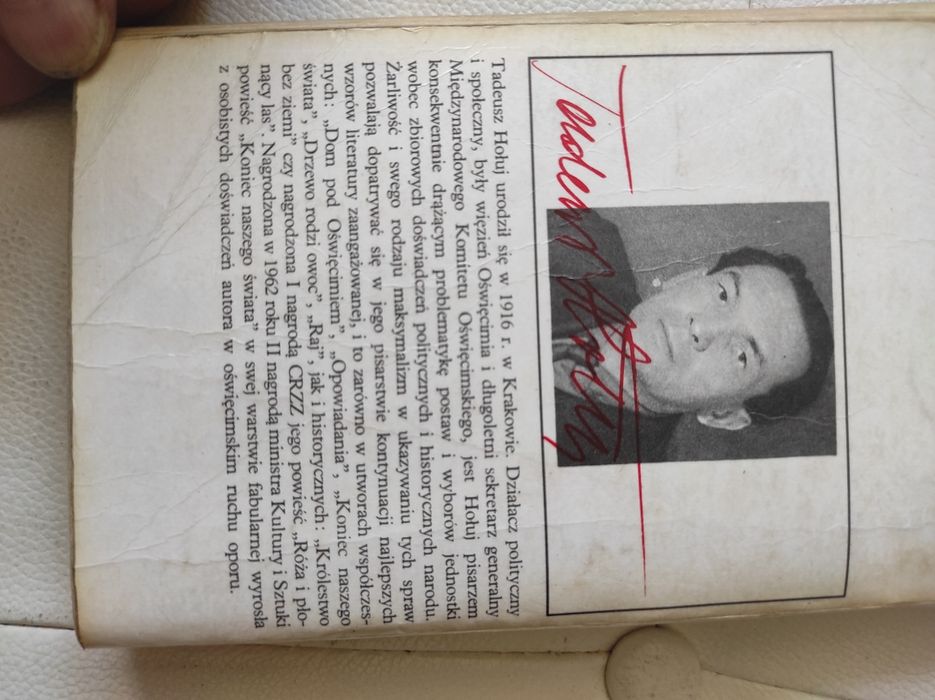 Tadeusz Hołuj
Tadeusz Hołuj urodził się w 1916 r. w Krakowie. Działacz polityczny
i społeczny, były więzień Oświęcimia i długoletni sekretarz generalny
Międzynarodowego Komitetu Oświęcimskiego, jest Hołuj pisarzem
konsekwentnie drążącym problematykę postaw i wyborów jednostki
wobec zbiorowych doświadczeń politycznych i historycznych narodu.
Żarliwość i swego rodzaju maksymalizm w ukazywaniu tych spraw
pozwalają dopatrywać się w jego pisarstwie kontynuacji najlepszych
wzorów literatury zaangażowanej, i to zarówno w utworach współczes-
nych: „Dom pod Oświęcimiem”, „Opowiadania”, „Koniec naszego
świata”, „Drzewo rodzi owoc”, „Raj”, jak i historycznych: „Królestwo
bez ziemi” czy nagrodzona I nagrodą CRZZ jego powieść „Róża i pło-
nący las”. Nagrodzona w 1962 roku II nagrodą ministra Kultury i Sztuki
powieść „Koniec naszego świata” w swej warstwie fabularnej wyrosła
z osobistych doświadczeń autora w oświęcimskim ruchu oporu.